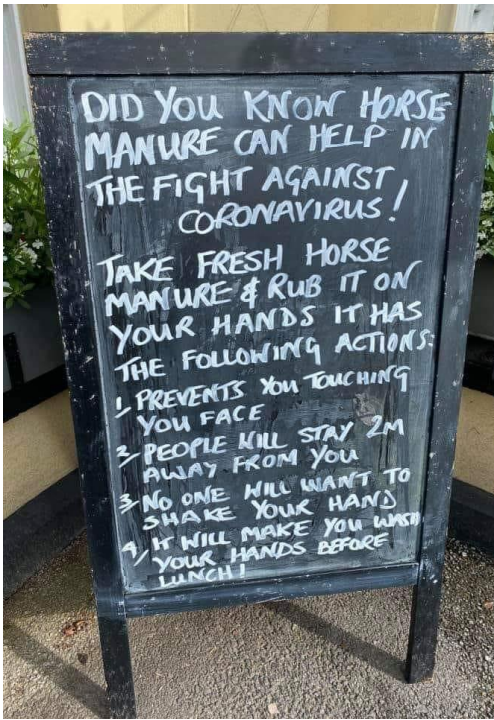 DID YOU KNOW HORSE
MANURE CAN HELP IN
THE FIGHT AGAINST
CORONAVIRUS!
TAKE FRESH HORSE
MANURE & RUB IT ON
YOUR HANDS IT HAS
THE FOLLOWING ACTIONS:
1, PREVENTS YOU TOUCHING
YOU FACE
2, PEOPLE WILL STAY 2M
AWAY FROM YOU
3, NO ONE WILL WANT TO
SHAKE YOUR HAND
4/ IT WILL MAKE YOU WASH
YOUR HANDS BEFORE
LUNCH!